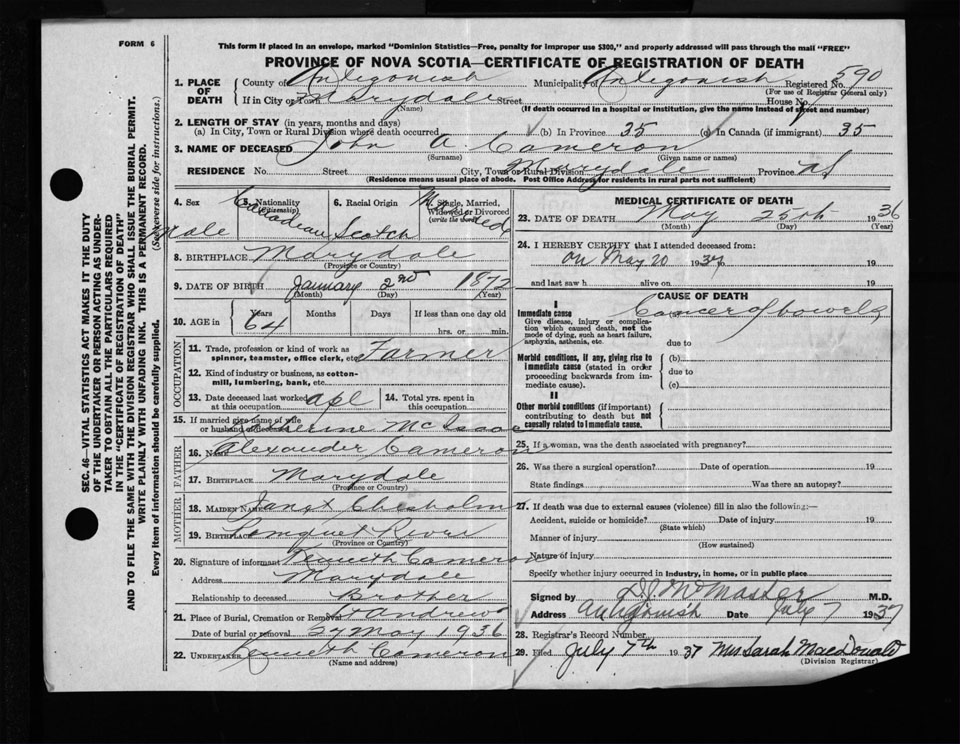 FORM 6
This form if placed in an envelope, marked "Dominion Statistics—Free, penalty for improper use $300," and properly addressed will pass through the mail "FREE"
PROVINCE OF NOVA SCOTIA—CERTIFICATE OF REGISTRATION OF DEATH
1. PLACE OF DEATH County of Antigonish Municipality of Antigonish Registered No. 590
(For use of Registrar General only)
If in City or Town Marydale Street House No.
(Name) (If death occurred in a hospital or institution, give the name instead of street and number)
2. LENGTH OF STAY (in years, months and days)
(a) In City, Town or Rural Division where death occurred (b) In Province 35 (c) In Canada (if immigrant) 35
3. NAME OF DECEASED John A Cameron
(Surname) (Given name or names)
RESIDENCE No. Street City, Town or Rural Division Marydale Province NS
(Residence means usual place of abode. Post Office Address for residents in rural parts not sufficient)
4. Sex Male
5. Nationality (Citizenship) Canadian
6. Racial Origin Scotch
7. Single, Married, Widowed or Divorced (write the word) Married
8. BIRTHPLACE Marydale
(Province or Country)
9. DATE OF BIRTH January 2nd 1872
(Month) (Day) (Year)
10. AGE in Years Months Days If less than one day old
64 hrs. or min.
OCCUPATION
11. Trade, profession or kind of work as spinner, teamster, office clerk, etc. Farmer
12. Kind of industry or business, as cotton-mill, lumbering, bank, etc.
13. Date deceased last worked at this occupation apl
14. Total yrs. spent in this occupation
15. If married give name of wife or husband of deceased Katherine McIsaac
FATHER
16. Name Alexander Cameron
17. BIRTHPLACE Marydale
(Province or Country)
MOTHER
18. MAIDEN NAME Chisholm
19. BIRTHPLACE Pomquet River
(Province or Country)
20. Signature of informant Kenneth Cameron
Address Marydale
Relationship to deceased Brother
21. Place of Burial, Cremation or Removal St Andrews
Date of burial or removal 27 May 1936
22. UNDERTAKER Kenneth Cameron
(Name and address)
MEDICAL CERTIFICATE OF DEATH
23. DATE OF DEATH May 25th 1936
(Month) (Day) (Year)
24. I HEREBY CERTIFY that I attended deceased from:
on May 20 1937 to 19
and last saw h alive on 19
CAUSE OF DEATH
I
Immediate cause (a) Cancer of bowels
Give disease, injury or complication which caused death, not the mode of dying, such as heart failure, asphyxia, asthenia, etc.
due to
Morbid conditions, if any, giving rise to immediate cause (stated in order proceeding backwards from immediate cause).
(b)
due to
(c)
II
Other morbid conditions (if important) contributing to death but not causally related to immediate cause.
25. If a woman, was the death associated with pregnancy?
26. Was there a surgical operation? Date of operation 19
State findings Was there an autopsy?
27. If death was due to external causes (violence) fill in also the following:—
Accident, suicide or homicide? Date of injury 19
(State which)
Manner of injury
(How sustained)
Nature of injury
Specify whether injury occurred in industry, in home, or in public place
Signed by McMaster M.D.
Address Antigonish Date July 7 1937
28. Registrar's Record Number
29. Filed July 7th 1937 Mrs Sarah MacDonald
(Division Registrar)
SEC. 46—VITAL STATISTICS ACT MAKES IT THE DUTY
OF THE UNDERTAKER OR PERSON ACTING AS UNDER-
TAKER TO OBTAIN ALL THE PARTICULARS REQUIRED
IN THE "CERTIFICATE OF REGISTRATION OF DEATH"
AND TO FILE THE SAME WITH THE DIVISION REGISTRAR WHO SHALL ISSUE THE BURIAL PERMIT.
WRITE PLAINLY WITH UNFADING INK. THIS IS A PERMANENT RECORD.
Every item of information should be carefully supplied. (See reverse side for instructions.)